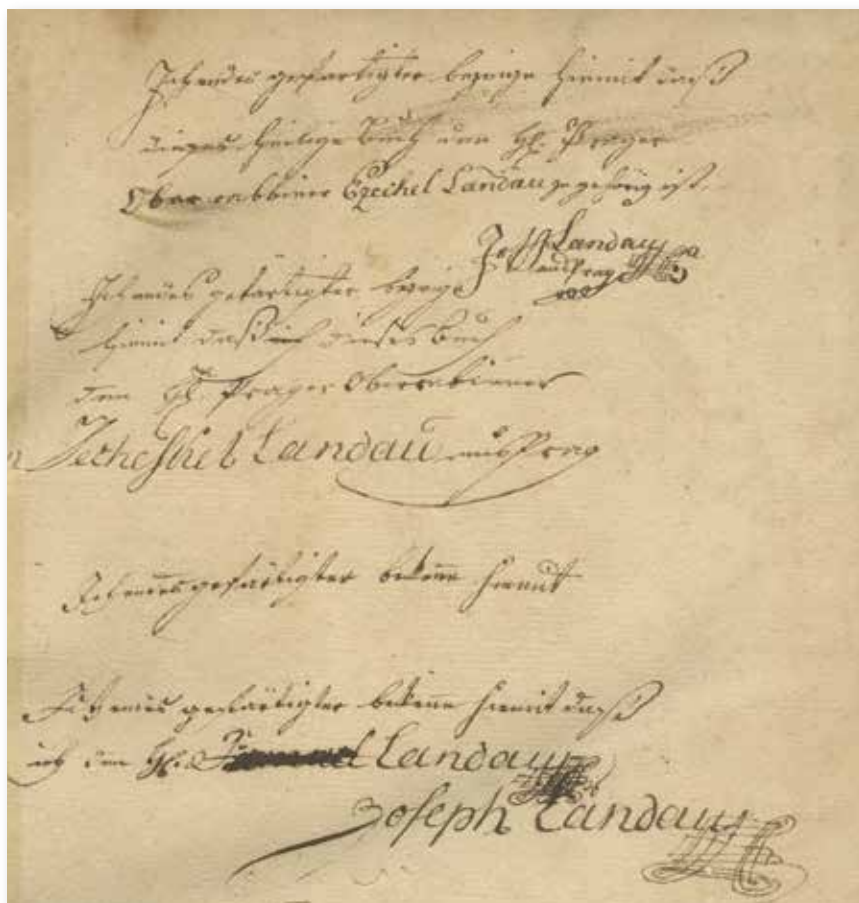 Ich endes gefertigter bezeige hiemit daß
dieses heilige Buch dem H. Prager
Oberrabbiner Ezechel Landau gehörig ist.
Landau
aus Prag
Ich endes gefertigter bezeige
hiemit daß ich dieses Buch
dem H. Prager Oberrabiner
Jecheskel Landau aus Prag
Ich endes gefärtigter bekenne hiemit
Ich endes gefärtigter bekenne hiemit daß
ich dem H. Landau
Joseph Landau